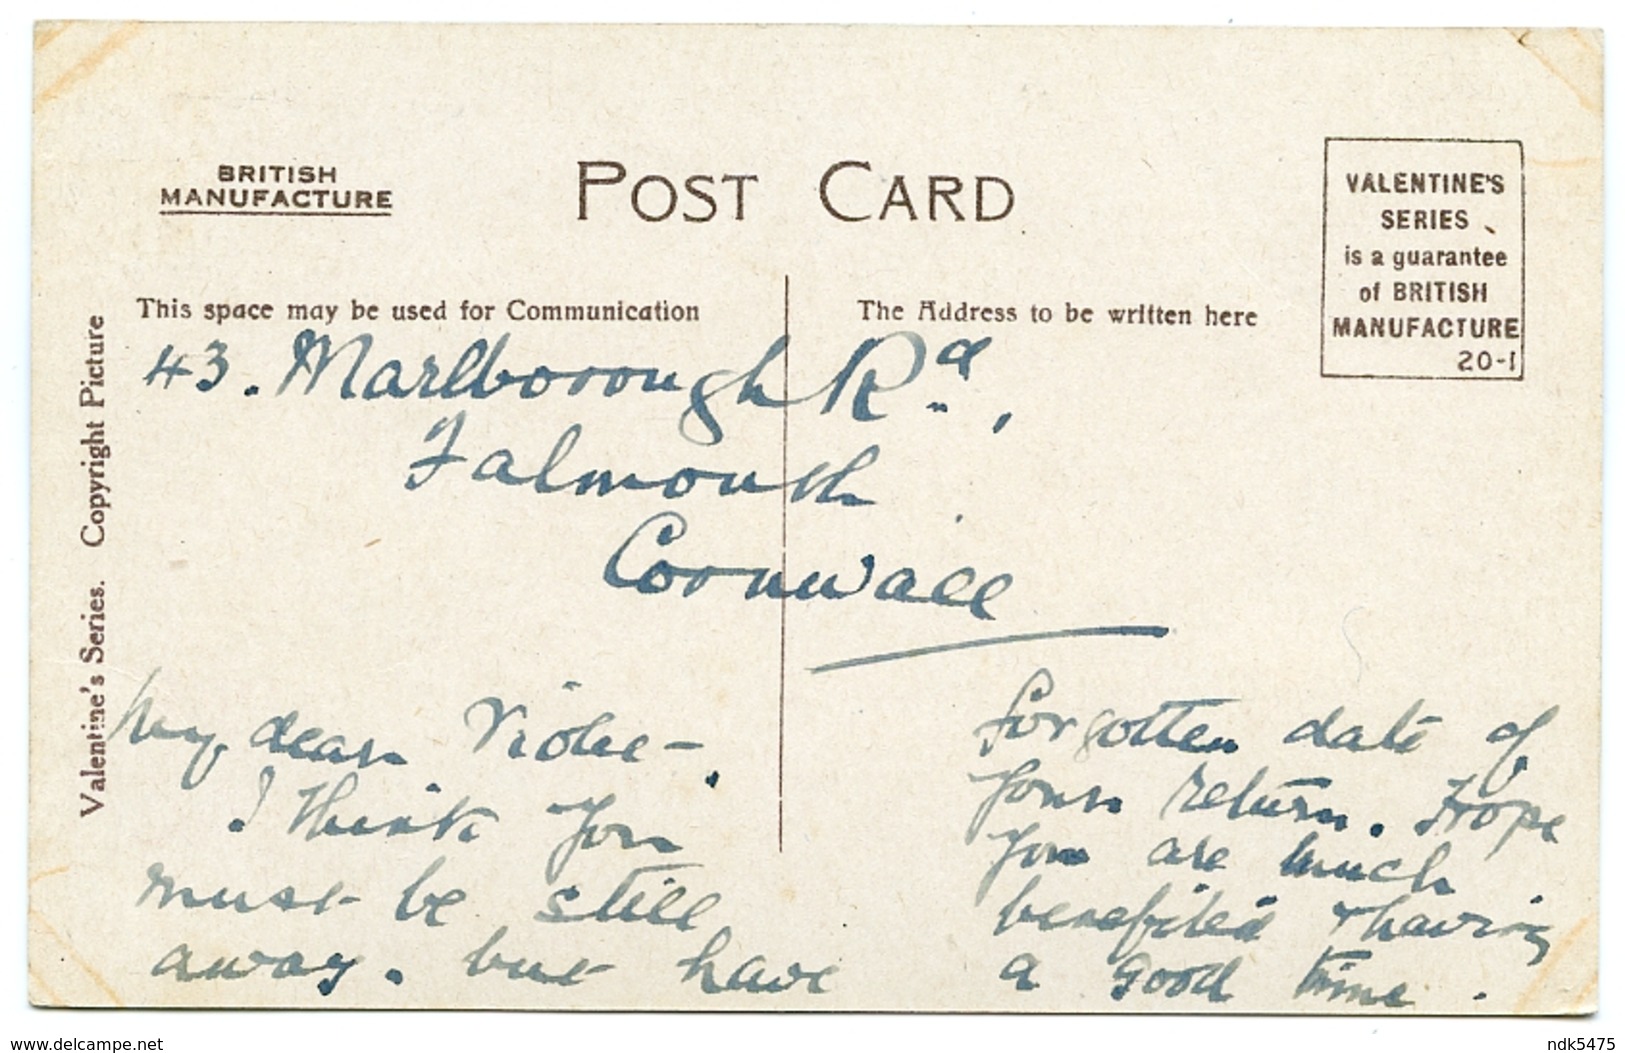 BRITISH
MANUFACTURE
POST CARD
VALENTINE'S
SERIES
is a guarantee
of BRITISH
MANUFACTURE
20-1
This space may be used for Communication
The Address to be written here
Valentine's Series. Copyright Picture
43. Marlborough Rd,
Falmouth
Cornwall
My dear Violie -,
I think you
must be still
away. but have
forgotten date of
your return. Hope
you are much
benefited & having
a good time.
www.delcampe.net
ndk5475